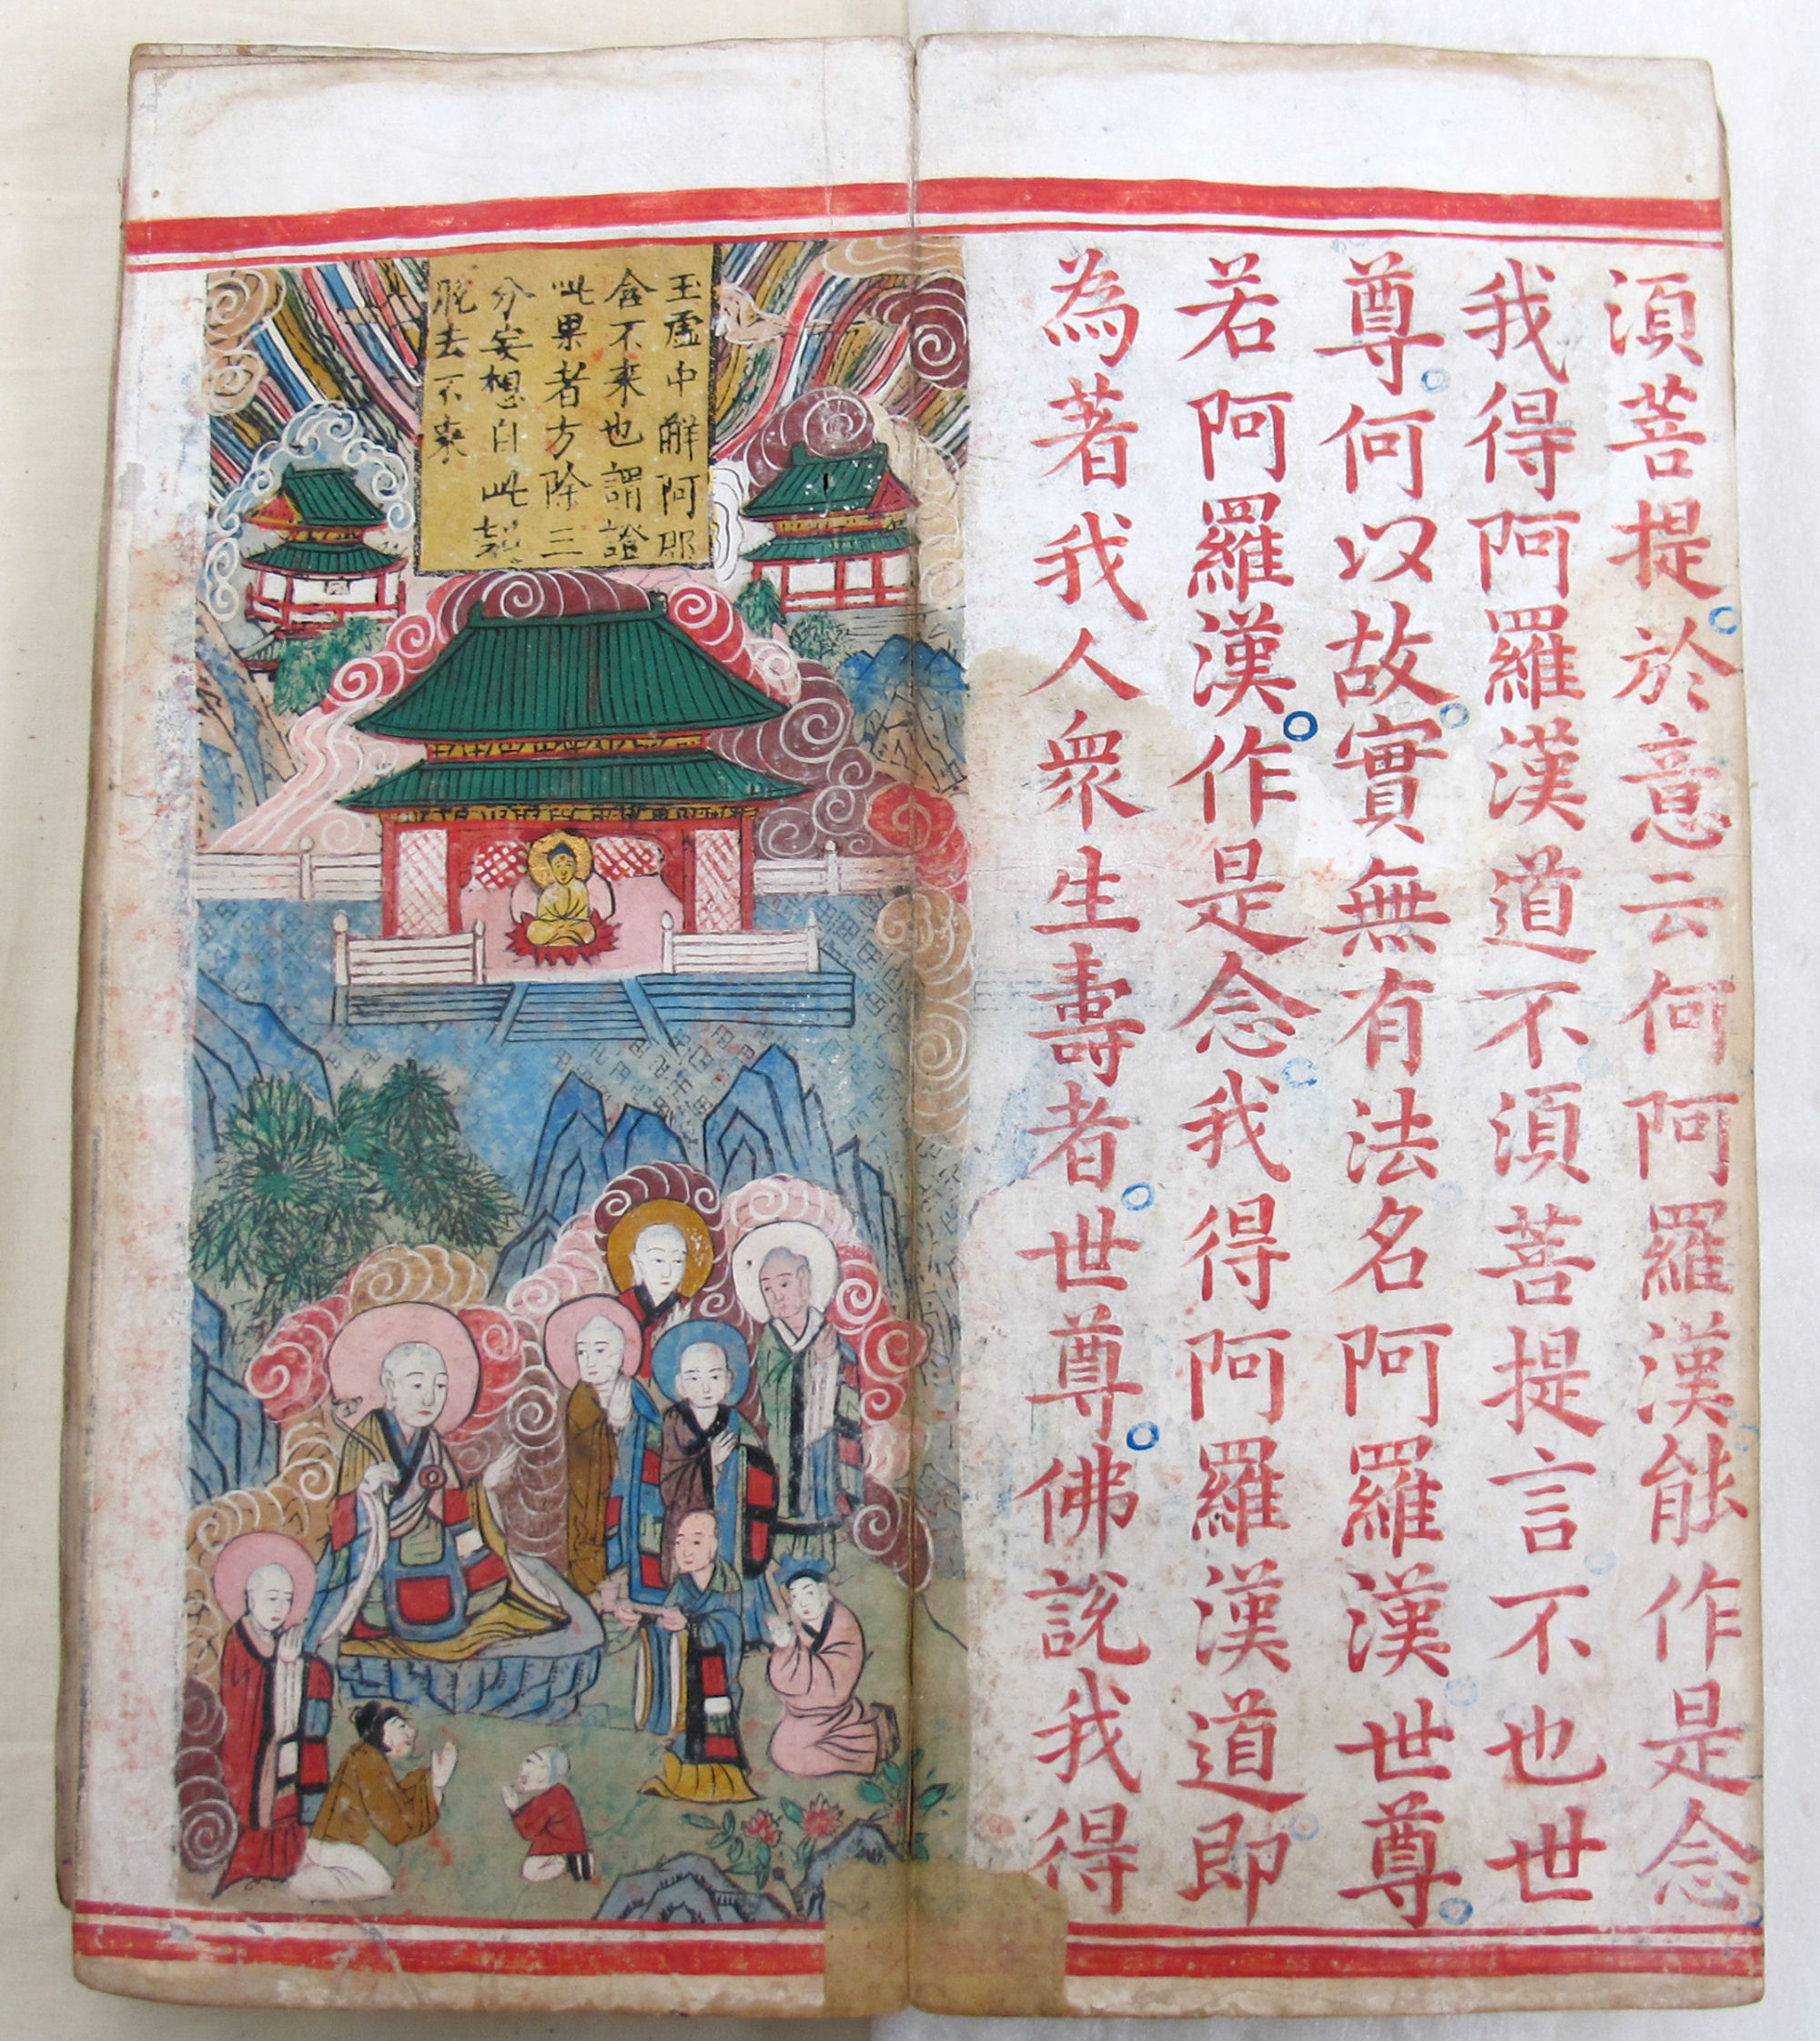 湏菩提。於意云何阿羅漢能作是念。
我得阿羅漢道不。湏菩提言。不也世
尊。何以故。實無有法名阿羅漢。世尊。
若阿羅漢。作是念。我得阿羅漢道。即
為著我人衆生壽者。世尊。佛說我得
玉虛中解阿那
含不来也謂證
此果者方除三
分妄想自此
脫去不来